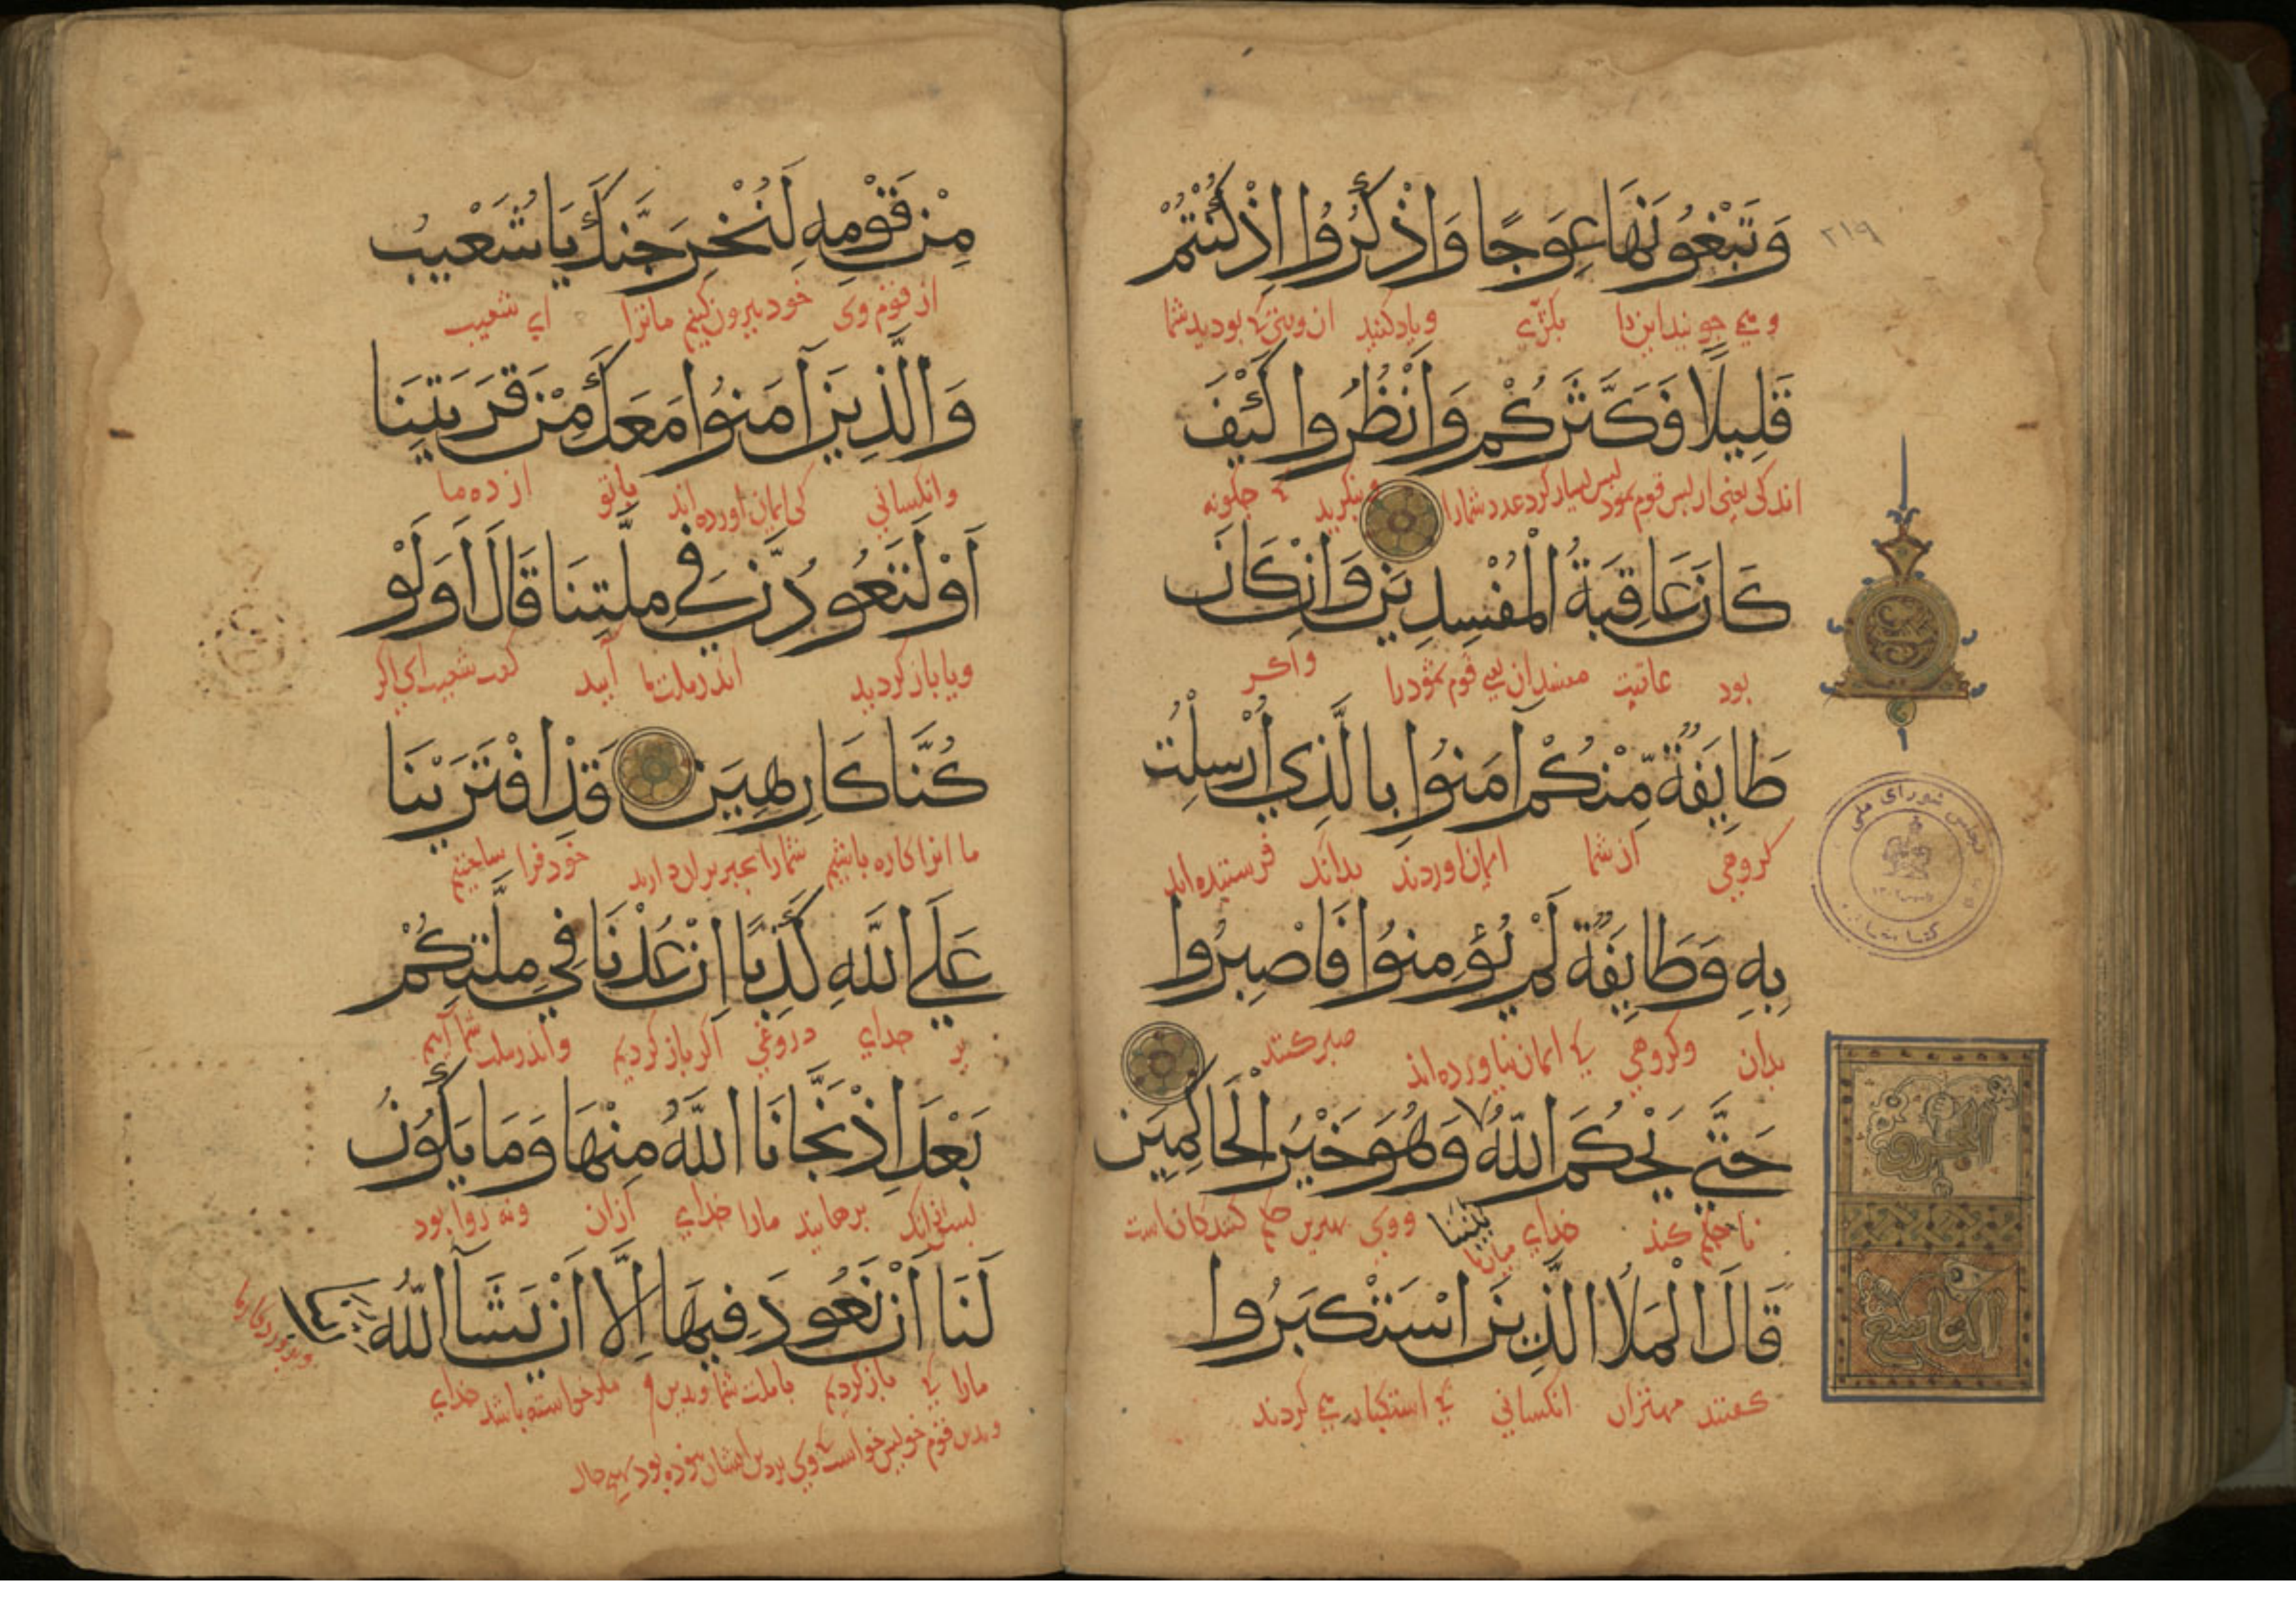 وَتَبْغُونَهَا عِوَجًا وَاذْكُرُوا إِذْ كُنْتُمْ
۲۱۹
و می جویند این را بکژی و یاد کنید بودید شما
قَلِيلًا فَكَثَّرَكُمْ وَانْظُرُوا كَيْفَ
اندکی یعنی از پس قوم ثمود پس بسیار کرد عدد شما را بنگرید که چگونه
كَانَ عَاقِبَةُ الْمُفْسِدِينَ وَاِنْ كَانَ
بود عاقبت مفسدان یعنی قوم ثمود را و اگر
طَايِفَةٌ مِّنْكُمْ آمَنُوا بِالَّذِي أُرْسِلْتُ
کروهی از شما ایمان اوردند بدانک فرستیده اند
مجلس شورای ملی
بِهِ وَطَايِفَةٌ لَمْ يُؤْمِنُوا فَاصْبِرُوا
بدان وکروهی که ایمان نیاورده اند صبر کنند
حَتَّى يَحْكُمَ اللّٰهُ وَهُوَ خَيْرُ الْحَاكِمِينَ
بَيْنَنَا
تا حکم کند خدای میان ما و وی بهترین حکم کنندکان است
الجزو
التاسع
قَالَ الْمَلَأُ الَّذِينَ اسْتَكْبَرُوا
کفتند مهتران انکسانی که استکبار می کردند
مِنْ قَوْمِهِ لَنُخْرِجَنَّكَ يَا شُعَيْبُ
از قوم وی خود بیرون کنیم مانرا ای شعیب
وَالَّذِينَ آمَنُوا مَعَكَ مِنْ قَرْيَتِنَا
وانکسانی کی ایمان اورده اند با تو از ده ما
اَوْ لَتَعُودُنَّ فِي مِلَّتِنَا قَالَ اَوَلَوْ
ویا باز کردید اندر ملت ما آیید کفت شعیب ای اکر
كُنَّا كَارِهِينَ قَدِ افْتَرَيْنَا
ما انرا کاره باشیم خود فرا ساختیم
عَلَى اللّٰهِ كَذِبًا اِنْ عُدْنَا فِي مِلَّتِكُمْ
بر خدای دروغی اکر باز کردیم و اندر ملت شما آییم
بَعْدَ اِذْ نَجَّانَا اللّٰهُ مِنْهَا وَمَا يَكُونُ
پس ازانک برهانید مارا خدای ازان ونه روا بود
لَنَا أَنْ نَعُودَ فِيهَا إِلَّا أَنْ يَشَآ اللّٰهُ
مارا که باز کردیم با ملت شما مکر خواسته باشد خدای